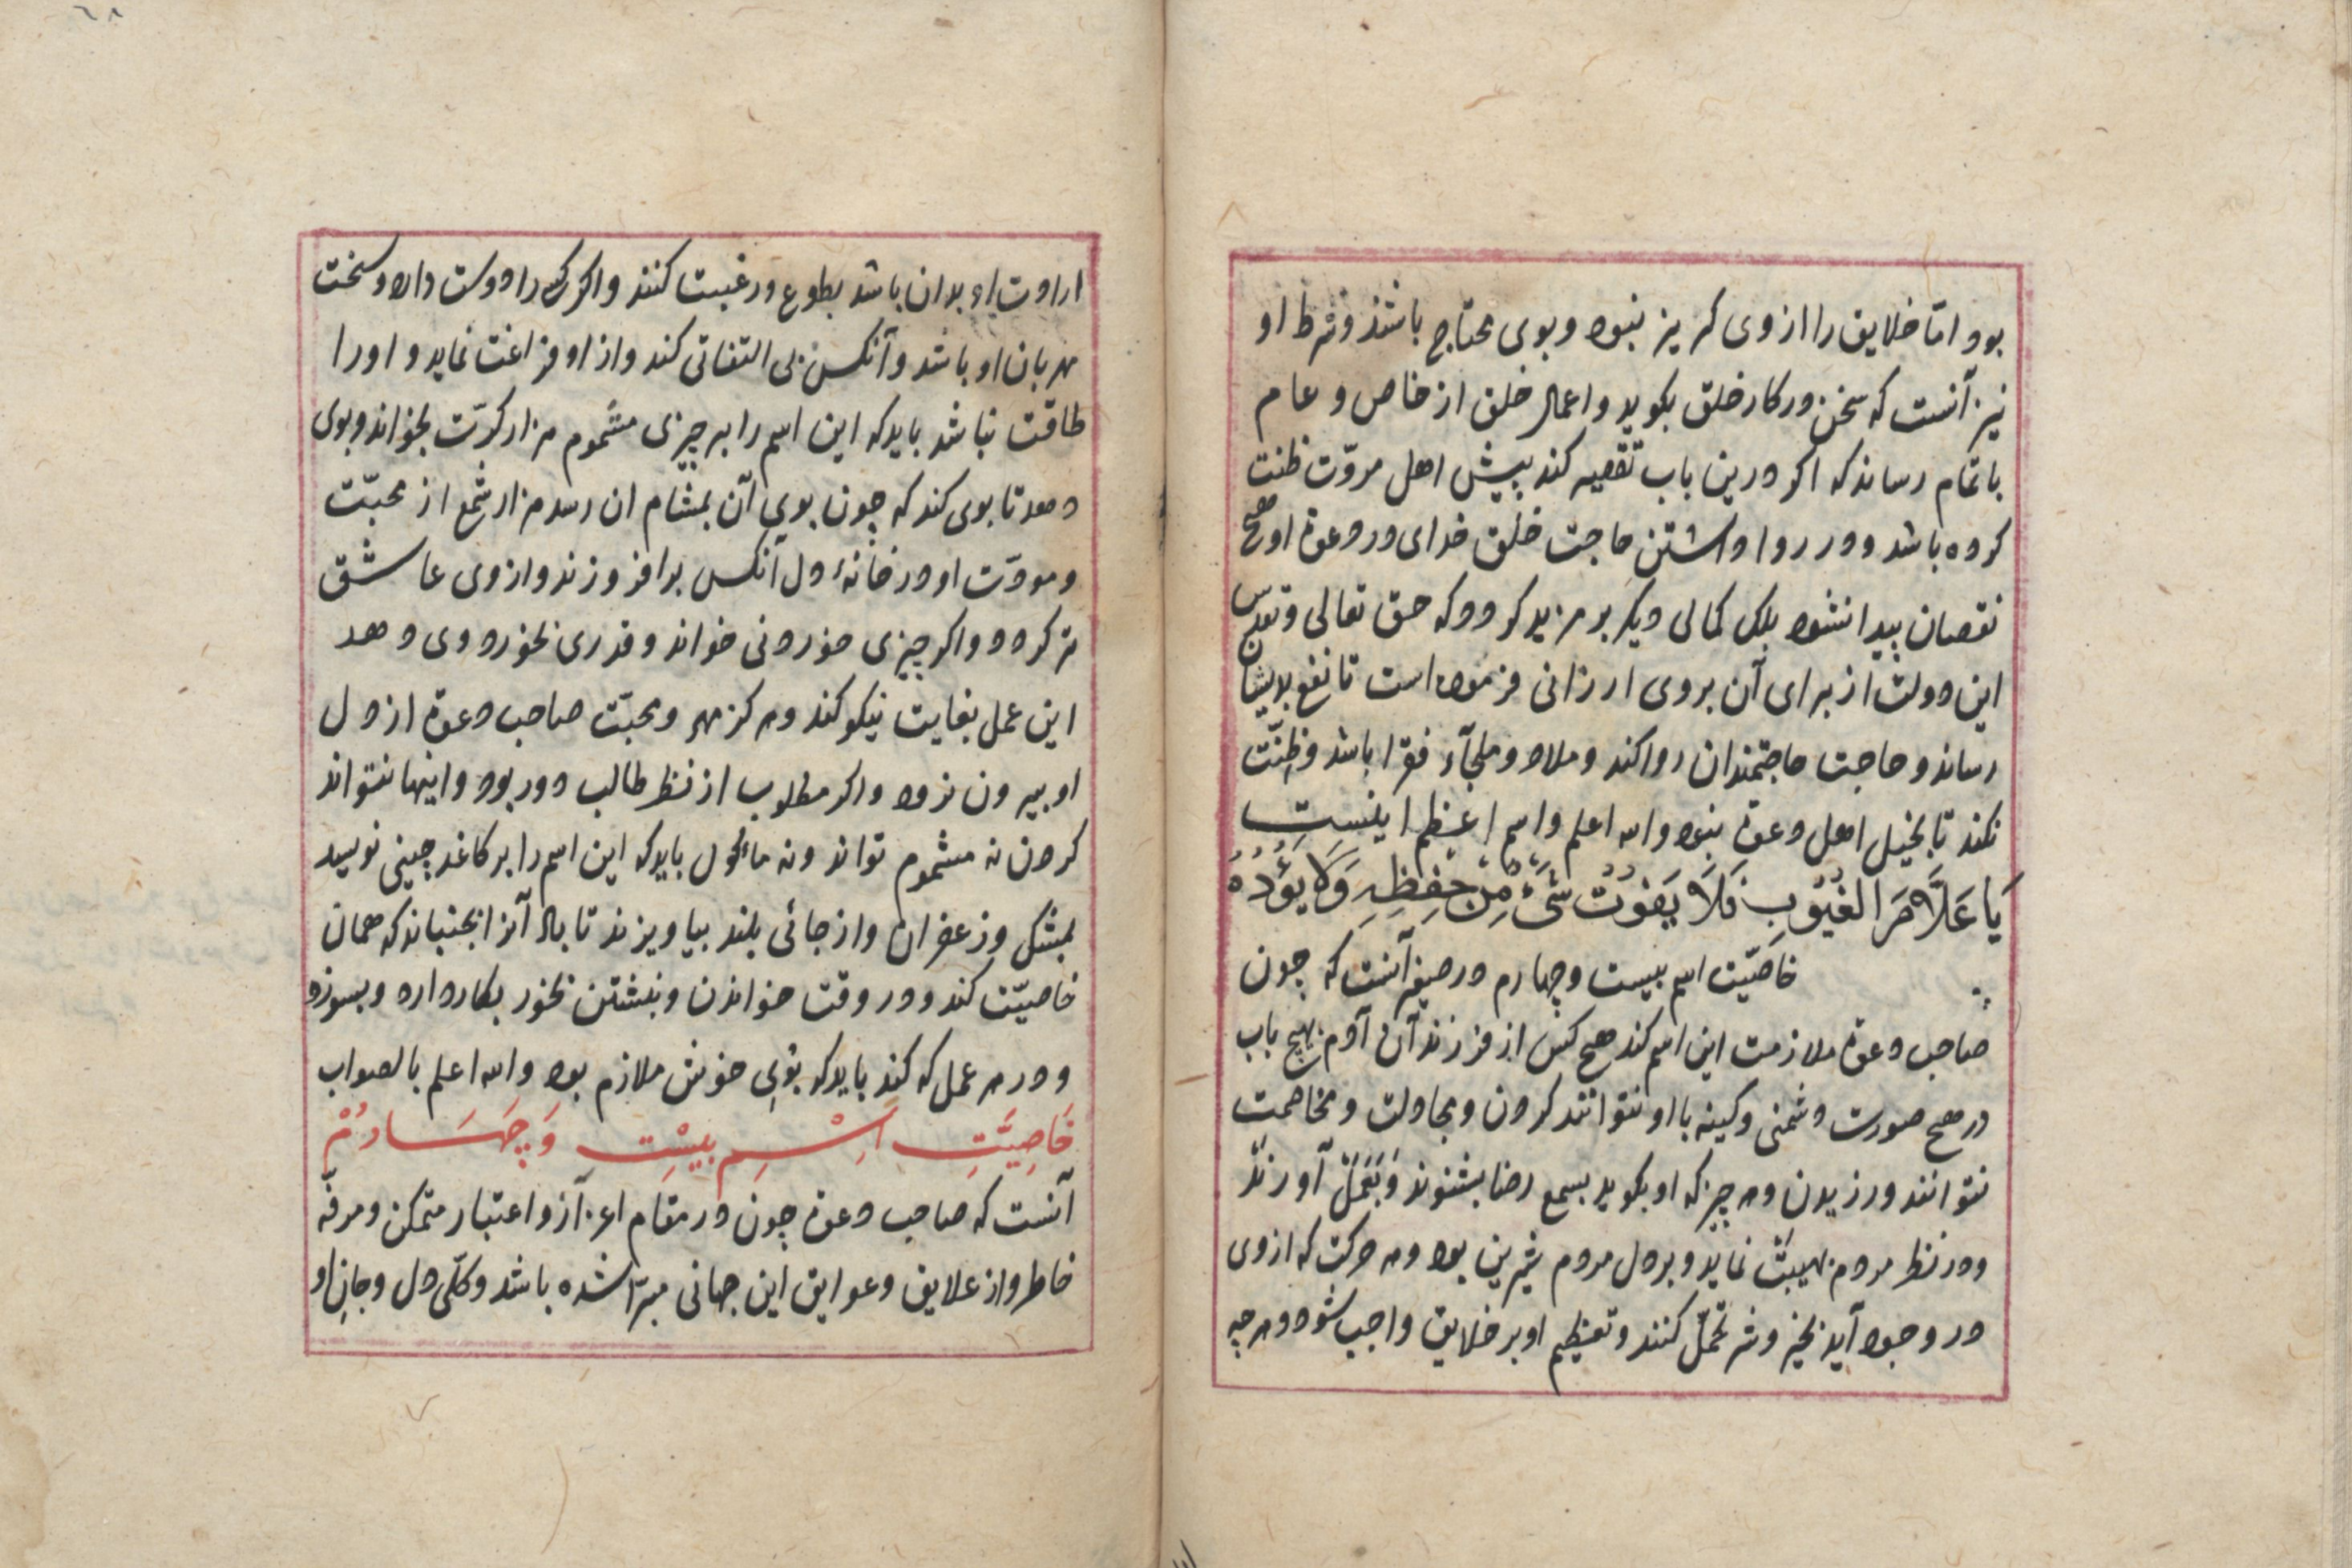 بود امّا خلایق را از وی کریز نبود و بوی محتاج باشند و شرط او
نیز آنست که سخن در کار خلق بکوید و اعمال خلق از خاص و عام
باتمام رساند که اکر درین باب تقصیر کند پیش اهل مروّت ظنت
کرده باشد و در روا داشتن حاجت خلق خدای در دعوة او هیچ
نقصان پیدا نشود بلکی کمالی دیکر بر مزید کردد که حق تعالی و تقدس
این دولت از برای آن بروی ارزانی فرموده است تا نفع بدیشان
رساند و حاجت حاجتمندان روا کند و ملاذ و ملجآء فقرا باشد و ظنّت
نکند تا بخیل اهل دعوة نبود والله اعلم و اسم اعظم اینست
یَا عَلَّامَ الغُیُوبِ فَلَا یَفُوتُ شَیْءٌ مِنْ حِفْظِهِ وَلَا یَؤُدُهُ
خاصیّت اسم بیست و چهارم در صیغر آنست که چون
صاحب دعوة ملازمت این اسم کند هیچ کس از فرزندان آدم بهیچ باب
در هیچ صورت دشمنی و کینه با او نتوانند کردن و مجادلت و مخاصمت
نتوانند ورزیدن و هر چیز که او بکوید بسمع رضا بشنوند و بعمل آورند
و در نظر مردم بهیبت نماید و بر دل مردم شیرین بود و هر حرکت که از وی
در وجود آید بخیر و شر تحمّل کنند و تعظیم او بر خلایق واجب شود و هر چه
ارادت او بدان باشد بطوع و رغبت کنند و اکر کسی را دوست دارد و سخت
مهربان او باشد و آنکس بی التفاتی کند و از او فراغت نماید و او را
طاقت نباشد باید که این اسم را بر چیزی مشموم هزار کرّت بخواند و بوی
دهد تا بوی کند که چون بوی آن بمشام ان رسد هزار شمع از محبّت
و مودّت او در خانهٔ دل آنکس برافروزند و از وی عاشق
تر کردد و اکر چیزی خوردنی خواند و قدری بخورد وی دهد
این عمل بغایت نیکو کند و هرکز مهر و محبّت صاحب دعوة از دل
او بیرون نرود و اکر مطلوب از نظر طالب دور بود و اینها نتواند
کردن نه مشموم تواند و نه ماکول باید که این اسم را بر کاغد چینی نویسد
بمشک و زعفران و از جائی بلند بیاویزند تا باد آنرا بجنباند که همان
خاصیّت کند و در وقت خواندن و نبشتن بخور بکار دارد و بسوزد
و در هر عمل که کند باید که بوی خوش ملازم بود والله اعلم بالصواب
خَاصِیَّتِ اِسْمِ بیسْتِ وَ چَهَارُمْ
آنست که صاحب دعوة چون در مقام اعزاز و اعتبار متمکن و مرفّه
خاطر و از علایق و عوایق این جهانی مبرّا شده باشد و کلّی دل و جان او